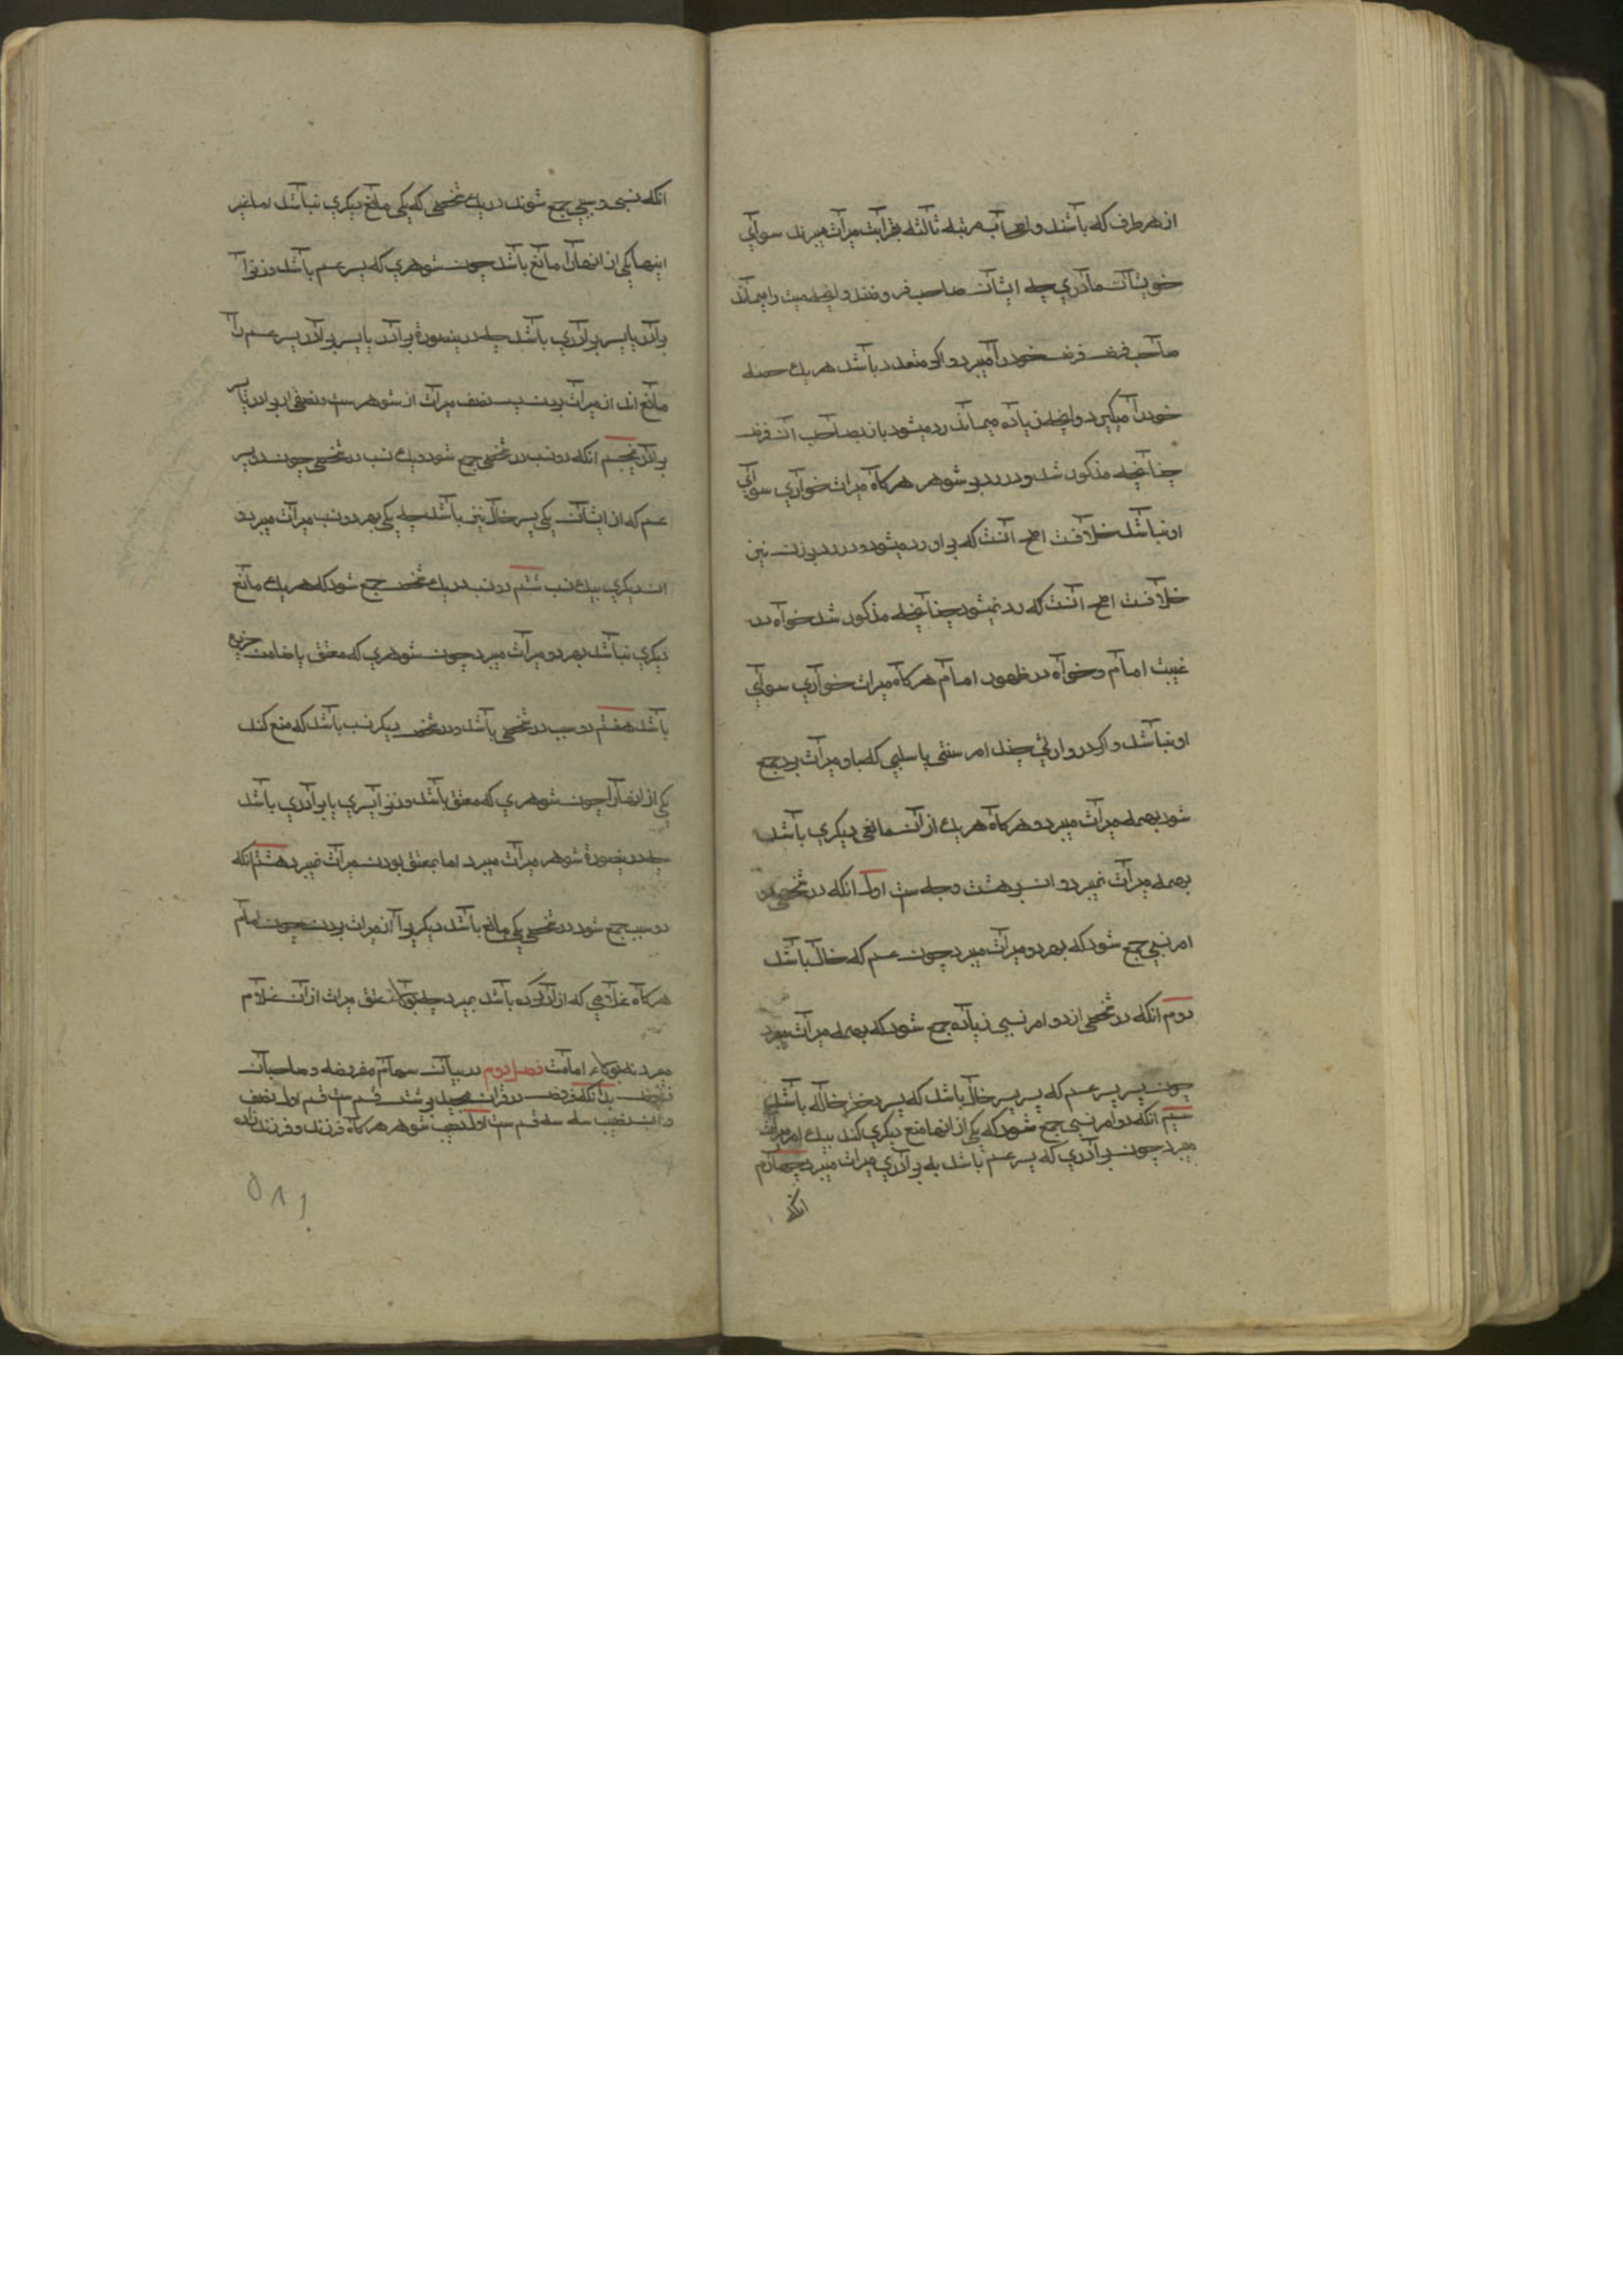 از هر طرف که باشند و اصحاب مرتبه ثالثه بقرابت میراث میبرند سوای
خویشان مادری چه ایشان صاحب فروضند و آنچه میت را بماند
صاحب فرض فرض خود را میبرد و اکر متعدد باشند هر یک حصه
خود را میگیرد و آنچه زیاده میماند رد میشود باز بصاحب آن فرض
چنانچه مذکور شد و در رد بر شوهر هرکاه میراث خواری سوای
او نباشد خلافست اصح آنست که بر او رد میشود و در رد بر زن نیز
خلافست اصح آنست که رد نمیشود چنانچه مذکور شد خواه در
غیبت امام و خواه در ظهور امام هرکاه میراث خواری سوای
او نباشد و اکر در وارثی چند امر نسبی یا سببی که باو میراث برد جمع
شود بهمه میراث میبرد و هرکاه هر یک از آن مانعی دیکری باشد
بهمه میراث نمیبرد و این بر هشت وجه ست اول آنکه در شخصی دو
امر نسبی جمع شود که بهر دو میراث میبرد چون عم که خال باشد
دوم آنکه در شخصی از دو امر نسبی زیاده جمع شود که بهمه میراث میبرد
چون پسر پسر عم که پسر پسر خال باشد که پسر دختر خاله باشد
سیم آنکه دو امر نسبی جمع شود که یکی از آنها منع دیکری کند بیک امر میراث
میبرد چون برادری که پسر عم باشد به برادری میراث میبرد چهارم
آنکه
آنکه نسبی و سببی جمع شوند در یک شخصی که یکی مانع دیکری نباشد اما غیر
اینها یکی از آنها را مانع باشد چون شوهری که پسر عم باشد و زن را
برادر یا پسر برادری باشد چه درینصورة برادر یا پسر برادر پسر عم را
مانع اند از میراث بردن پس نصف میراث از شوهر ست و نصفی از برادر یا پسر
برادر پنجم آنکه دو نسب در شخصی جمع شود و یک نسب در شخصی چون دو پسر
عم که از ایشان یکی پسر خال نیز باشد چه یکی بهر دو نسب میراث میبرد و
آن دیکری بیک نسب ششم دو نسب در یک شخص جمع شود که هر یک مانع
دیکری نباشد بهر دو میراث میبرد چون شوهری که معتق یا ضامن جریره
باشد هفتم دو سبب در شخصی باشد و در شخص دیکر نسب باشد که منع کند
یکی از آنها را چون شوهری که معتق باشد و زن را پسری یا برادری باشد
چه درینصورة شوهر میراث میبرد اما بمعتق بودن میراث نمیبرد هشتم آنکه
دو سبب جمع شود در شخصی یکی مانع باشد دیکر را از میراث بردن چون امام
هرکاه غلامی که ازاد کرده باشد بمیرد چه بولاء عتق میراث از آن غلام
میبرد نه بولاء امامت فصل دوم در بیان سهام مفروضه و صاحبان
فروض بدانکه فروض در قران مجید بر شش قسم ست قسم اول نصف
و این نصیب سه قسم ست اول نصیب شوهر هرکاه فرزند و فرزند زاده
۵۸۱